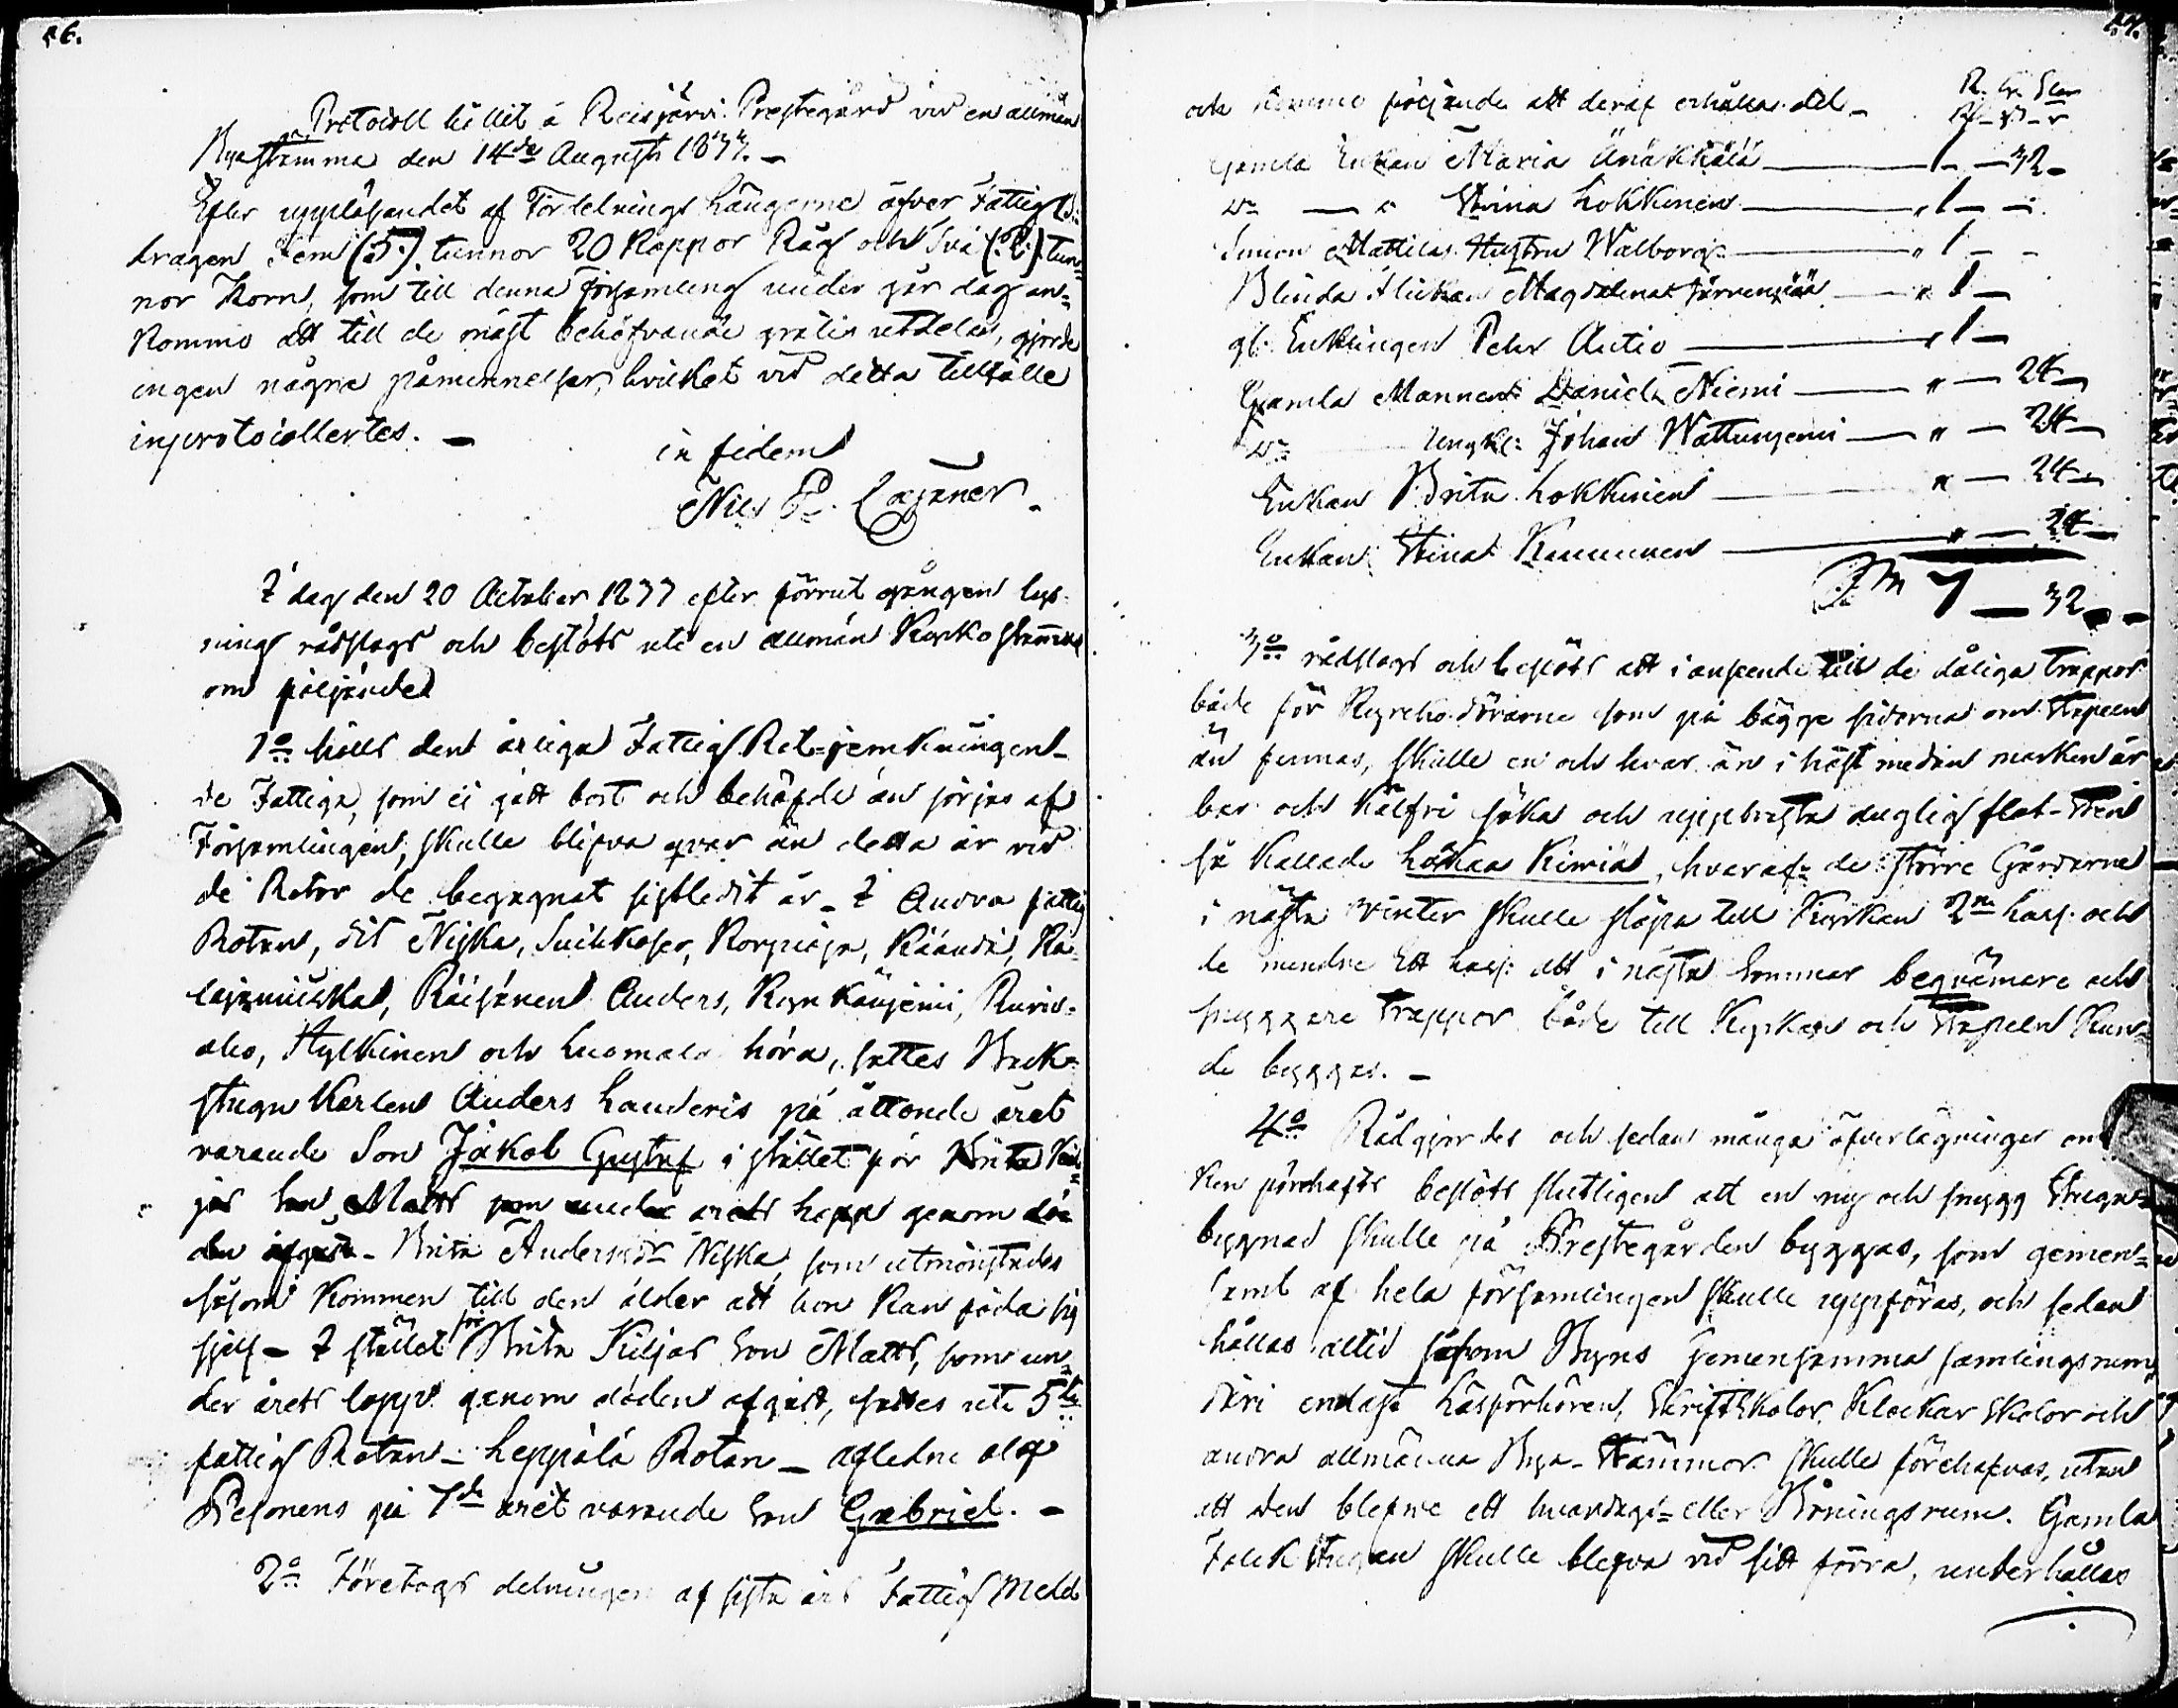 26.
Protocoll hållit å Reisjärvi Prestegård vid en allmän
Byastämma den 14de Augusti 1837. –
Efter uppläsandet af Fördelnings Längerne öfver Fattig
dragen Fem (5.) tunnor 20 Kappor Råg och två (:2:) tun=
nor Korn, som till denna Församling under går dag an=
kommo att till de mäst behöfvande gratis utdelas, gjorde
ingen några påminnelser, hvilket vid detta tillfälle
inprotocollertes. –
in fidem
Nils P. Cajaner.
I dag den 20 October 1837 efter förrut gången lys=
ning rådslogs och beslöts uti en allmän Kyrko stämma
om följande
1o hölls den årliga Fattig Rot=jemkningen –
de Fattiga, som ej gått bort och behöfde än sörjas af
Församlingen, skulle blifva qvar än detta år vid
de Rotor de begagnat sistledit år – I Andra fattig
Rotan, dit Niska, Kääntä, Ka=
lajamiuska, Räisänen Anders,
aho, Hylkinen och Luomala höra, sattes Back=
stugu Karlen Anders Lauderis på åttonde året
varande Son Jakob Gustaf i stället för Brita Kil
jas Son Matts som under årets lopp genom dö
den afgått – Brita Andersdr Niska som utmönstrades
såsom kommen till den ålder att hon kan föda sig
sjelf – I stället för Brita Kiljas Son Matts, som un=
der årets lopp genom döden afgått, sattes uti 5te
fattig Rotan – Leppälä Rotan – afledne Olof
Pesonens på 7de året varande Son Gabriel. –
2o Företogs delningen af sista års Fattig Medel
27.
och komma följande att deraf erhålla del –
R. Gr. Slr
Gamla Enkan Maria Änäkkälä — 1 – 32 –
do — " Stina Lokkinen — " 1 – –
Simon Mattilas Hustru Walborg — " 1 – –
Blinda Flickan Magdalena Järvenpää — " 1 –
gl: Enklingen Pehr Autio — " 1 –
Gamla Mannen Daniel Niemi — " – 24 –
do Ungkl: Johan Wattunjemi — " – 24 –
Enkan Brita Lokkinen — " – 24 –
Enkan Stina Kinnunen — " – 24 –
Sm 7 – 32 –
3o rådslogs och beslöts att i anseende till de dåliga trappor
både för Kyrcko dörarne som på bägge sidorna om Stapeln
än finnas, skulle en och hvar än i höst medan marken är
bar och kälfri söka och uppbryta duglig flat-sten
så kallade laakaa kiwiä, hvaraf de större Gårdarne
i nästa vinter skulle släpa till Kyrkan 2ne lass och
de mindre Ett lass att i nästa Sommar beqvämare och
snyggare Trappor både till Kyrkan och Stapeln kun=
de byggas. –
4o Rådgjordes och sedan många öfverlägningar om
ken förehafts beslöts slutligen att en ny och snygg Stugu=
byggnad skulle på Prestegården byggas, som gemen=
samt af hela församlingen skulle uppföras, och sedan
hållas altid såsom Byns gemensamma samlingsrum
deri endast Läsförhören, Skriftskolor, Klockar Skolor och
andra allmänna Bya-Stämmor skulle förehafvas, utan
att den blefve ett hvardags= eller Böningsrum. Gamla
Falck stugan skulle blefva vid sitt förra, underhållas